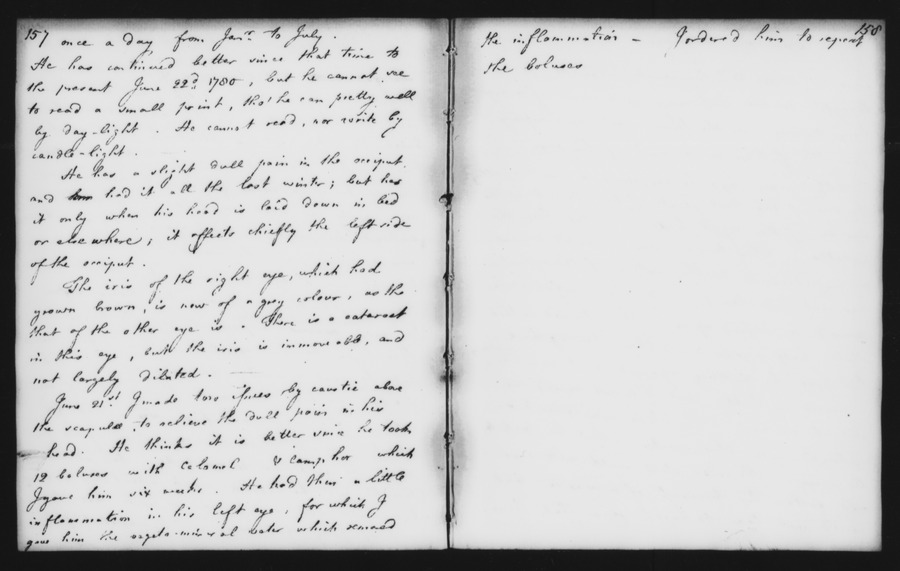 157
once a day from Jan.ry to July.
He has continued better since that time to
the present June 22d 1780, but he cannot see
to read a small print, tho' he can pretty well
by day-light. He cannot read, nor write by
candle-light.
He has a slight dull pain in the occiput
and had it all the last winter; but has
it only when his head is laid down in bed
or elsewhere; it affects chiefly the left side
of the occiput.
The iris of the right eye, which had
grown brown, is now of a grey colour, as the
that of the other eye is. There is a cataract
in this eye, but the iris is immoveable, and
not largely dilated.
June 21st I made two issues by caustic above
the scapulae to relieve the dull pain in his
head. He thinks it is better since he took
12 boluses with calomel & camphor which
I gave him six weeks. He had then a little
inflammation in his left eye, for which I
gave him the vegeto-mineral water which removed
158
the inflammation - I ordered him to repeat
the boluses